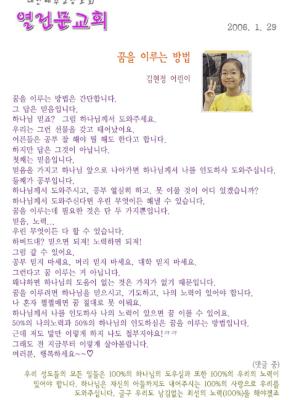 열린문교회
2006. 1. 29
꿈을 이루는 방법
김현정 어린이
꿈을 이루는 방법은 간단합니다.
그 답은 믿음입니다.
하나님 믿죠? 그럼 하나님께서 도와주세요.
우리는 그런 선물을 갖고 태어났어요.
어른들은 공부 잘 해야 뭘 해도 한다고 합니다.
하지만 답은 그것이 아닙니다.
첫째는 믿음입니다.
믿음을 가지고 하나님 앞으로 나아가면 하나님께서 나를 인도하사 도와주십니다.
둘째가 공부입니다.
하나님께서 도와주시고, 공부 열심히 하고, 못 이룰 것이 어디 있겠습니까?
하나님께서 도와주신다면 우린 무엇이든 해낼 수 있습니다.
꿈을 이루는데 필요한 것은 단 두 가지뿐입니다.
믿음, 노력...
우린 무엇이든 다 할 수 있습니다.
하버드대? 믿으면 되져! 노력하면 되져!
그럼 갈 수 있어요.
공부 믿지 마세요, 머리 믿지 마세요, 대학 믿지 마세요.
그런다고 꿈이 이루는 거 아닙니다.
왜냐하면 하나님의 도움이 없는 것은 가치가 없기 때문입니다.
꿈을 이루려면 하나님을 믿으시고, 기도하고, 나의 노력이 있어야 합니다.
나 혼자 쩔쩔매면 꿈 절대로 못 이뤄요.
하나님께서 나를 인도하사 나의 노력이 있으면 꿈 이룰 수 있어요.
50%의 나의노력과 50%의 하나님의 인도하심은 꿈을 이루는 방법입니다.
근데 저도 말만 이렇게 하지 나도 철부지아요!ㅋㅋ
그래도 전 지금부터 이렇게 살아볼랍니다.
여러분, 행복하세요~~♡
(댓글 중)
우리 성도들의 모든 일들은 100%의 하나님의 도우심과 또한 100%의 우리의 노력이
있어야 합니다. 하나님은 자신의 아들까지도 내어주시는 100%의 사랑으로 우리를
도와주십니다. 글구 우리도 남김없는 최선의 노력(100%)을 해야겠죠